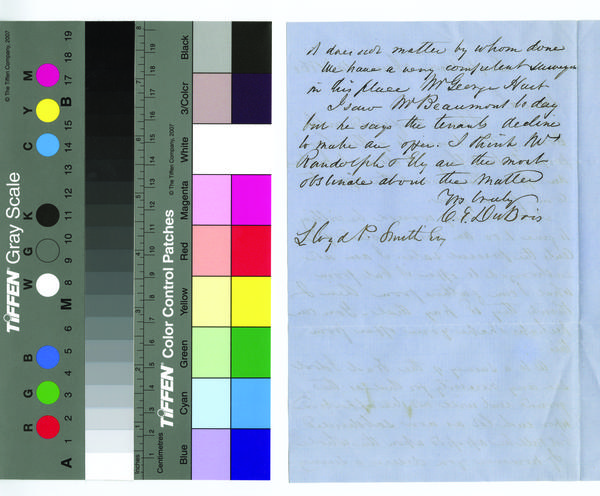 it does not matter by whom done
We have a very competent Surveyor
in this place Mr George Hart
I saw Mr Beaumont to day
but he says the tenants decline
to make an offer. I think Mr
Randolph & Ely are the most
obstinate about the matter
Yrs truly
C. E. DuBois
Lloyd P. Smith Esq
TIFFEN Gray Scale
© The Tiffen Company, 2007
R G B W G K C Y M
A 1 2 3 4 5 6 M 8 9 10 11 12 13 14 15 B 17 18 19
TIFFEN Color Control Patches
© The Tiffen Company, 2007
Inches 1 2 3 4 5 6 7 8
Centimetres
Blue
Cyan
Green
Yellow
Red
Magenta
White
3/Color
Black